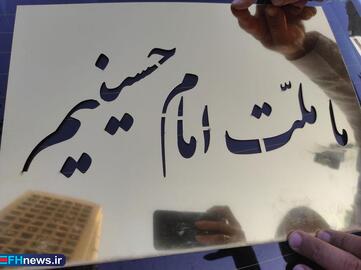 ما ملّت امام حسینیم
FHnews.ir